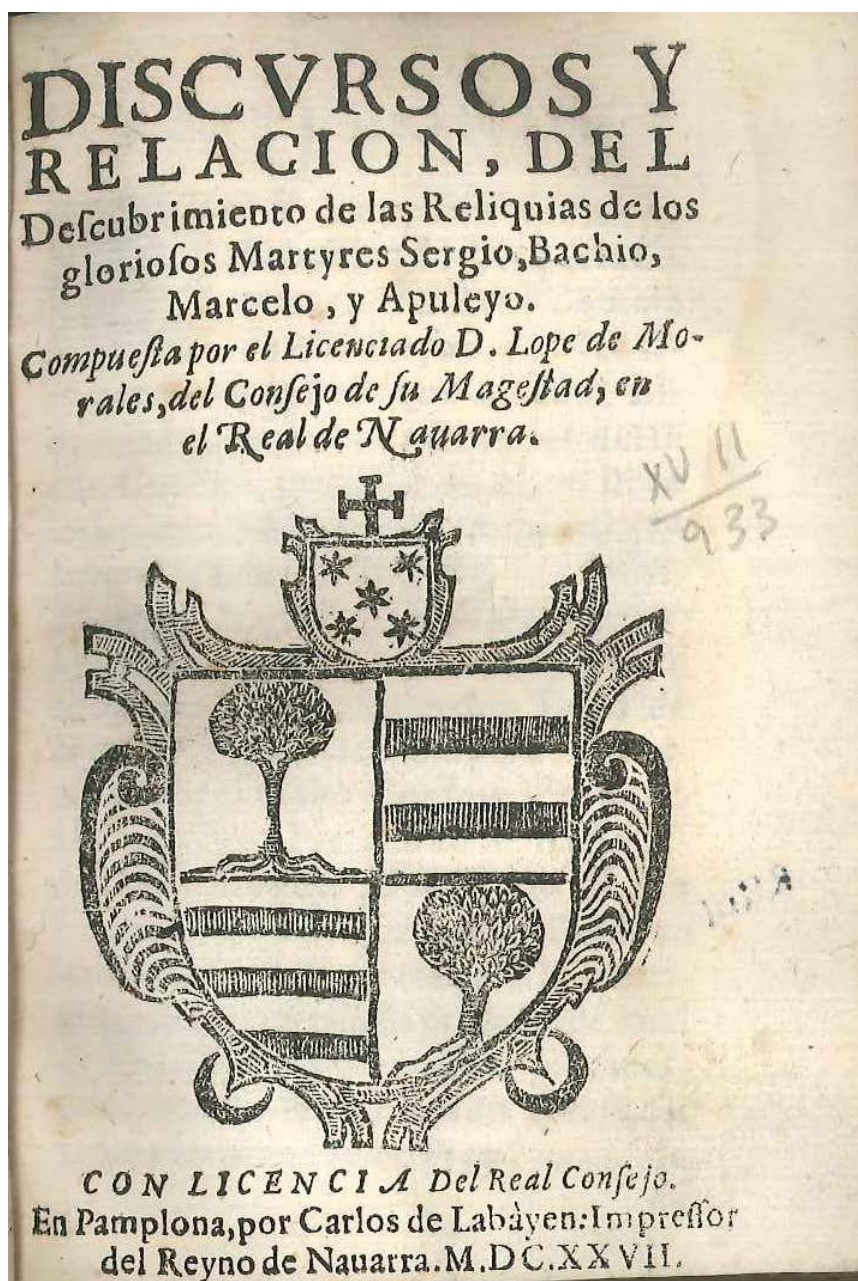 DISCVRSOS Y
RELACION, DEL
Deſcubrimiento de las Reliquias de los
glorioſos Martyres Sergio, Bachio,
Marcelo, y Apuleyo.
Compueſta por el Licenciado D. Lope de Mo-
rales, del Conſejo de ſu Mageſtad, en
el Real de Nauarra.
XVII
933
CON LICENCIA Del Real Conſejo.
En Pamplona, por Carlos de Labàyen: Impreſſor
del Reyno de Nauarra. M.DC.XXVII.